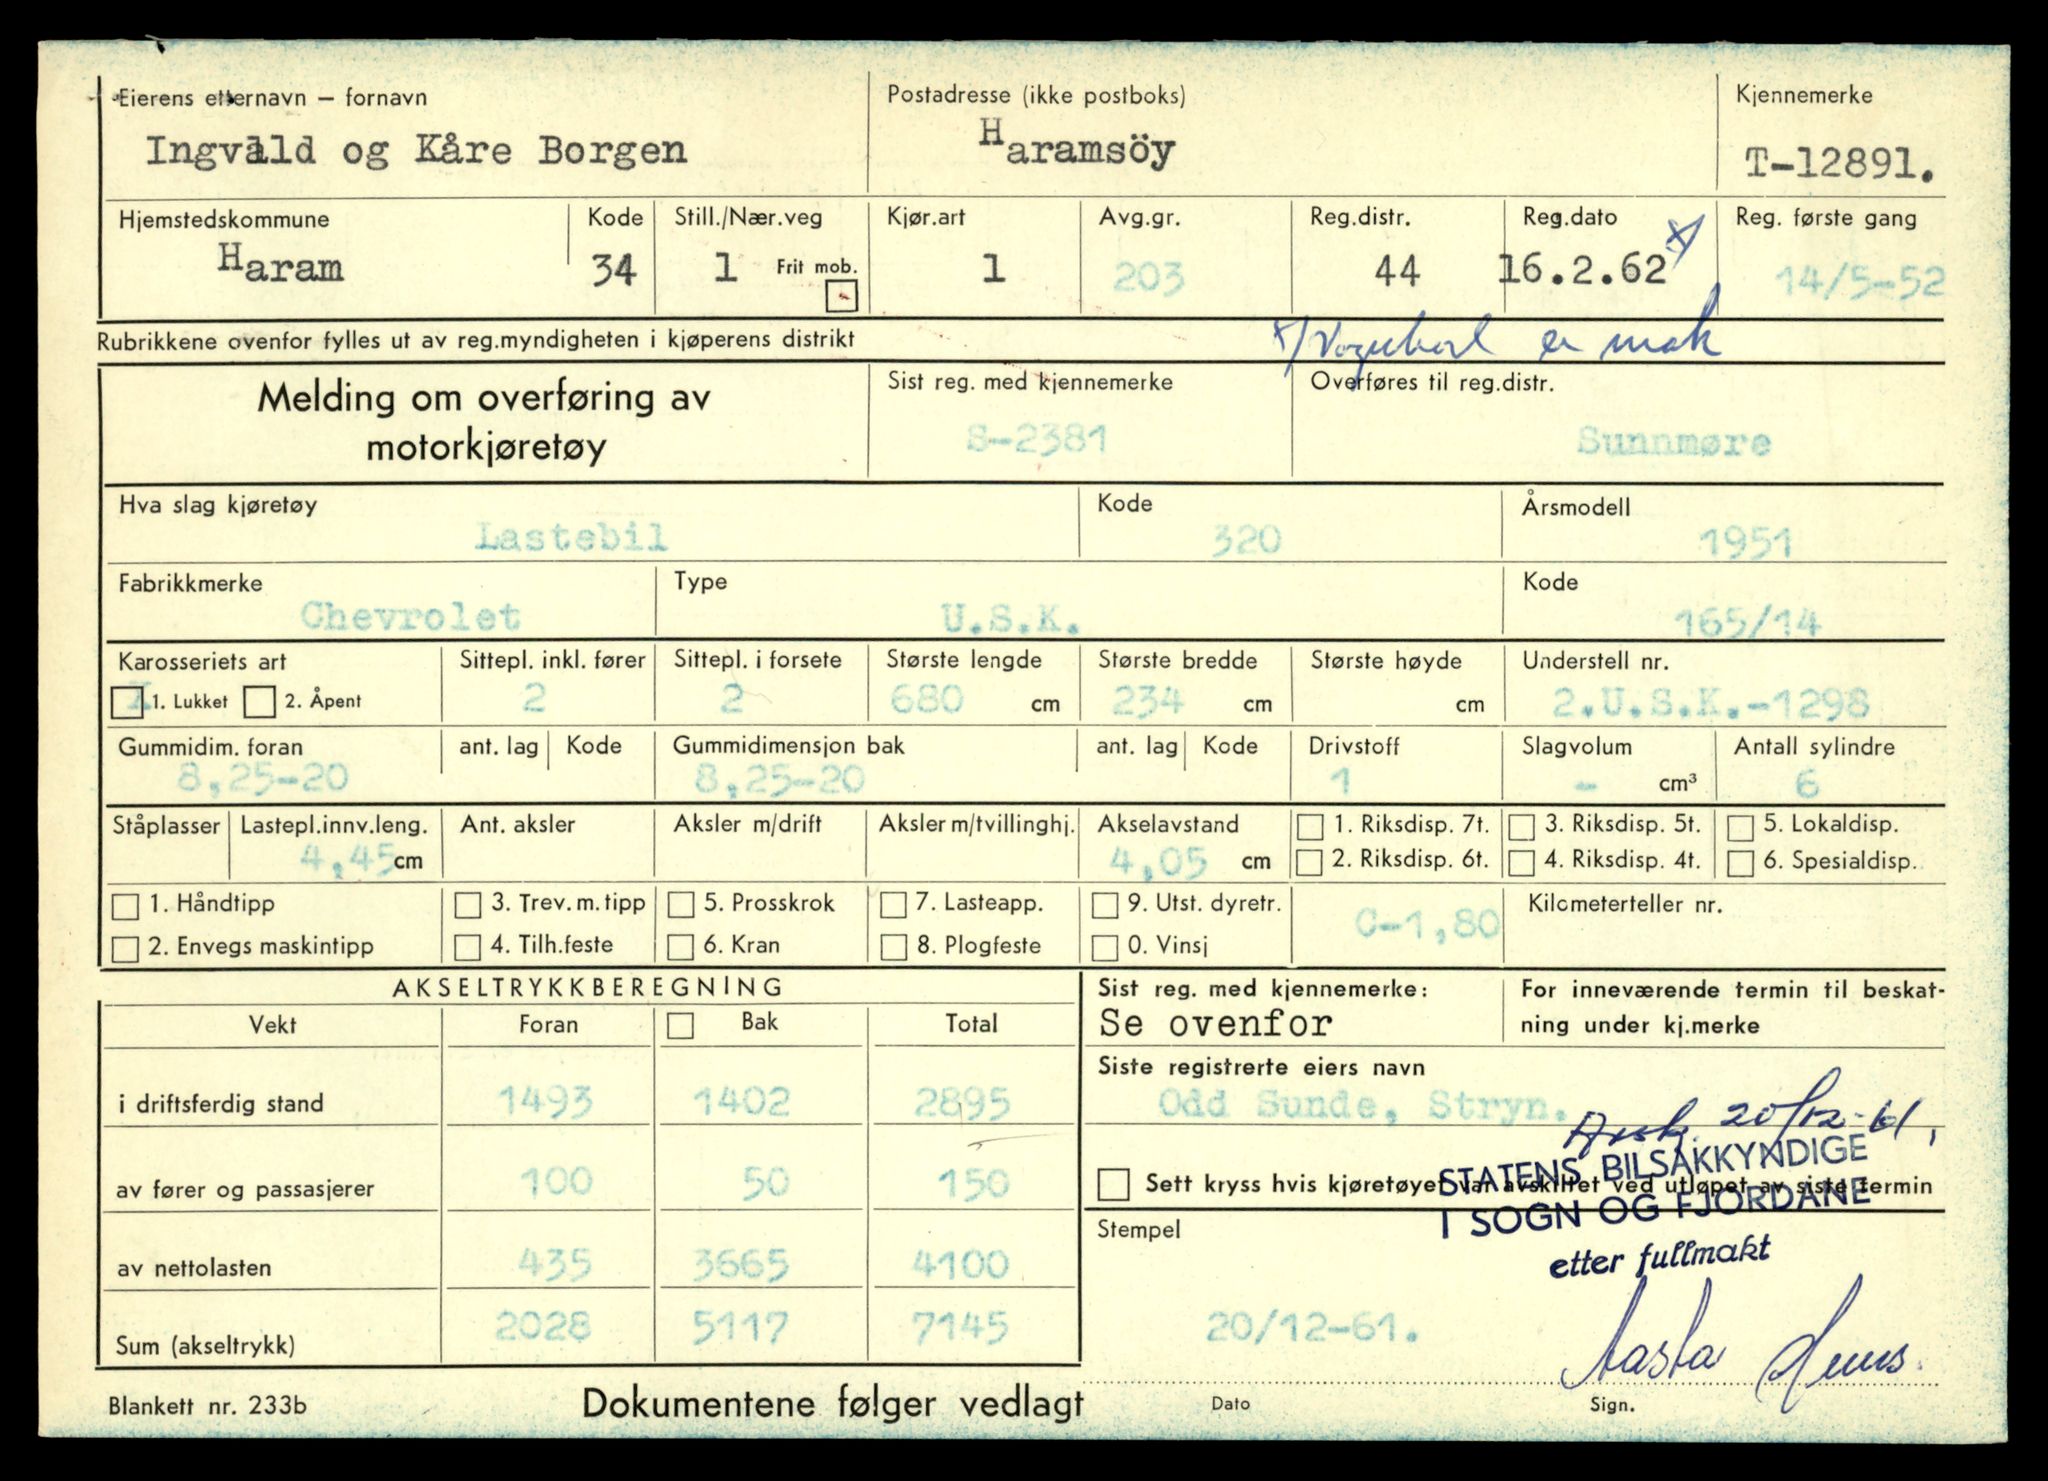 Eierens etternavn – fornavn
Ingvald og Kåre Borgen
Postadresse (ikke postboks)
Haramsöy
Kjennemerke
T-12891.
Hjemstedskommune
Haram
Kode
34
Still./Nær.veg
1
Frit mob.
Kjør.art
1
Avg.gr.
203
Reg.distr.
44
Reg.dato
16.2.62 x/
Reg. første gang
14/5-52
Rubrikkene ovenfor fylles ut av reg.myndigheten i kjøperens distrikt
x/ Vognkort er mak
Melding om overføring av
motorkjøretøy
Sist reg. med kjennemerke
S-2381
Overføres til reg.distr.
Sunnmøre
Hva slag kjøretøy
Lastebil
Kode
320
Årsmodell
1951
Fabrikkmerke
Chevrolet
Type
U.S.K.
Kode
165/14
Karosseriets art
X 1. Lukket 2. Åpent
Sittepl. inkl. fører
2
Sittepl. i forsete
2
Største lengde
680 cm
Største bredde
234 cm
Største høyde
cm
Understell nr.
2.U.S.K.-1298
Gummidim. foran
8,25-20
ant. lag Kode
Gummidimensjon bak
8,25-20
ant. lag Kode
Drivstoff
1
Slagvolum
- cm³
Antall sylindre
6
Ståplasser
Lastepl.innv.leng.
4,45 cm
Ant. aksler
Aksler m/drift
Aksler m/tvillinghj.
Akselavstand
4,05 cm
1. Riksdisp. 7t.
2. Riksdisp. 6t.
3. Riksdisp. 5t.
4. Riksdisp. 4t.
5. Lokaldisp.
6. Spesialdisp.
1. Håndtipp
2. Envegs maskintipp
3. Trev. m. tipp
4. Tilh.feste
5. Prosskrok
6. Kran
7. Lasteapp.
8. Plogfeste
9. Utst. dyretr.
0. Vinsj
C-1,80
Kilometerteller nr.
AKSELTRYKKBEREGNING
Vekt Foran Bak Total
i driftsferdig stand 1493 1402 2895
av fører og passasjerer 100 50 150
av nettolasten 435 3665 4100
Sum (akseltrykk) 2028 5117 7145
Sist reg. med kjennemerke:
Se ovenfor
For inneværende termin til beskat-
ning under kj.merke
Siste registrerte eiers navn
Odd Sunde, Stryn.
Avskj. 20/12-61,
Sett kryss hvis kjøretøyet var avskiltet ved utløpet av siste termin
STATENS BILSAKKYNDIGE
I SOGN OG FJORDANE
etter fullmakt
Stempel
20/12-61.
Aasta
Dato
Sign.
Blankett nr. 233b
Dokumentene følger vedlagt